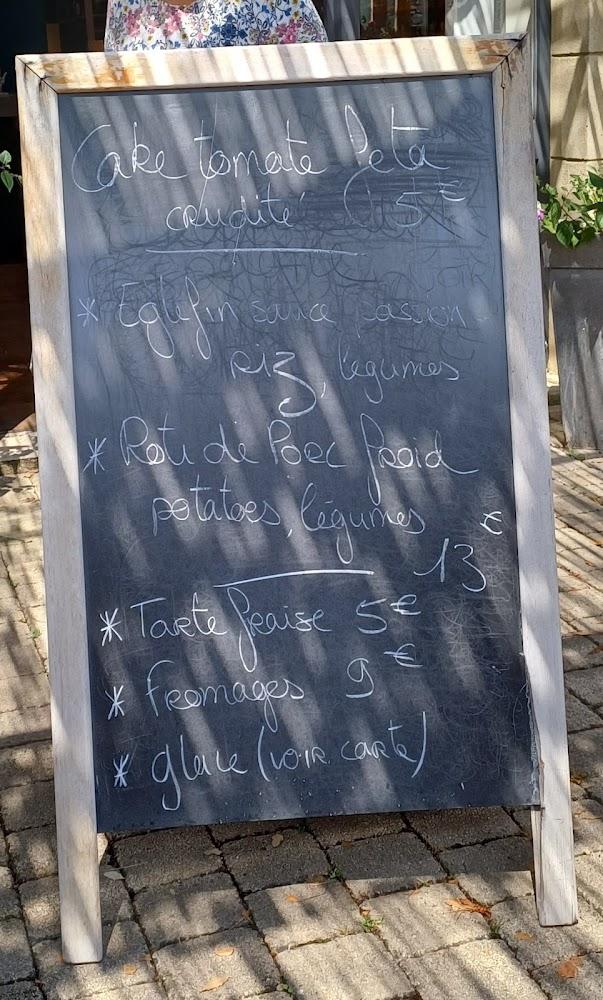 Cake tomate Feta
crudité 5€
* Eglefin sauce passion
riz, légumes
* Roti de Porc froid
potatoes, légumes
13€
* Tarte fraise 5€
* Fromages 9€
* glace (voir carte)